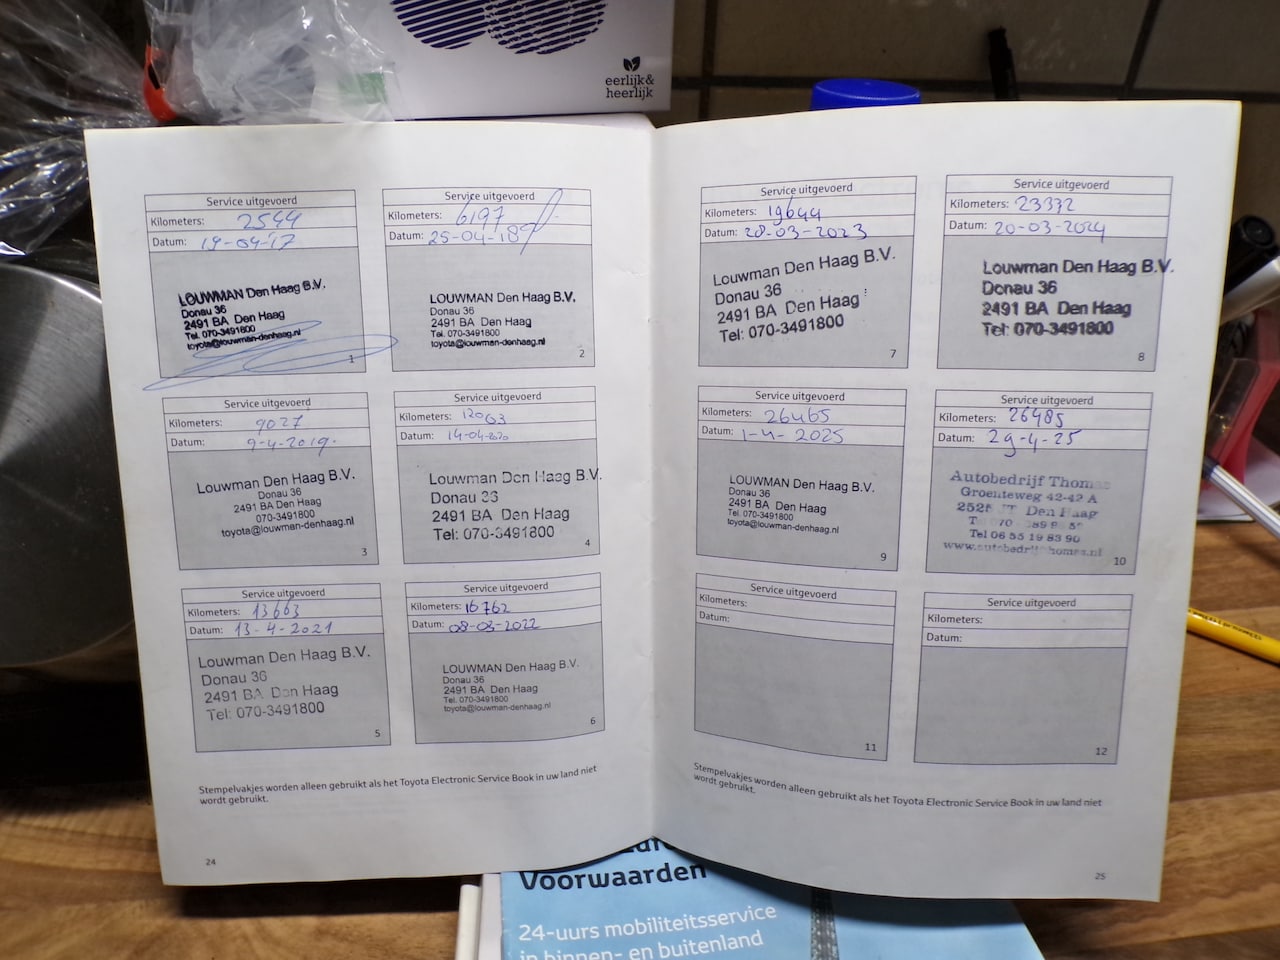 eerlijk&
heerlijk
Service uitgevoerd
Kilometers: 2544
Datum: 19-04-17
LOUWMAN Den Haag B.V.
Donau 36
2491 BA Den Haag
Tel. 070-3491800
toyota@louwman-denhaag.nl
1
Service uitgevoerd
Kilometers: 6197
Datum: 25-04-18
LOUWMAN Den Haag B.V.
Donau 36
2491 BA Den Haag
Tel. 070-3491800
toyota@louwman-denhaag.nl
2
Service uitgevoerd
Kilometers: 9027
Datum: 9-4-2019.
Louwman Den Haag B.V.
Donau 36
2491 BA Den Haag
070-3491800
toyota@louwman-denhaag.nl
3
Service uitgevoerd
Kilometers: 12063
Datum: 14-04-2020
Louwman Den Haag B.V.
Donau 36
2491 BA Den Haag
Tel: 070-3491800
4
Service uitgevoerd
Kilometers: 13663
Datum: 13-4-2021
Louwman Den Haag B.V.
Donau 36
2491 BA Den Haag
Tel: 070-3491800
5
Service uitgevoerd
Kilometers: 16762
Datum: 08-03-2022
LOUWMAN Den Haag B.V.
Donau 36
2491 BA Den Haag
Tel. 070-3491800
toyota@louwman-denhaag.nl
6
Stempelvakjes worden alleen gebruikt als het Toyota Electronic Service Book in uw land niet
wordt gebruikt.
24
Service uitgevoerd
Kilometers: 19644
Datum: 28-03-2023
Louwman Den Haag B.V.
Donau 36
2491 BA Den Haag
Tel: 070-3491800
7
Service uitgevoerd
Kilometers: 23372
Datum: 20-03-2024
Louwman Den Haag B.V.
Donau 36
2491 BA Den Haag
Tel: 070-3491800
8
Service uitgevoerd
Kilometers: 26465
Datum: 1-4-2025
LOUWMAN Den Haag B.V.
Donau 36
2491 BA Den Haag
Tel. 070-3491800
toyota@louwman-denhaag.nl
9
Service uitgevoerd
Kilometers: 26485
Datum: 29-4-25
Autobedrijf Thomas
Groenteweg 42-42 A
Den Haag
Tel 06 55 19 83 90
www.autobedrijfthomas.nl
10
Service uitgevoerd
Kilometers:
Datum:
11
Service uitgevoerd
Kilometers:
Datum:
12
Stempelvakjes worden alleen gebruikt als het Toyota Electronic Service Book in uw land niet
wordt gebruikt.
25
Voorwaarden
24-uurs mobiliteitsservice
in binnen- en buitenland